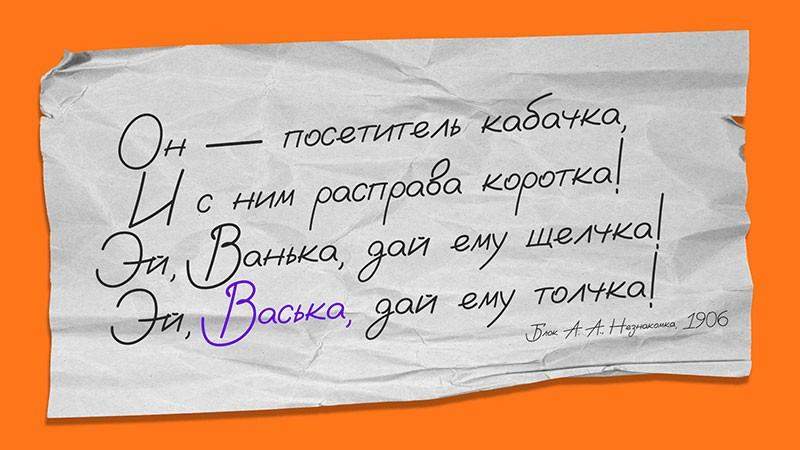 Он — посетитель кабачка,
И с ним расправа коротка!
Эй, Ванька, дай ему щелчка!
Эй, Васька, дай ему толчка!
Блок А. А. Незнакомка, 1906